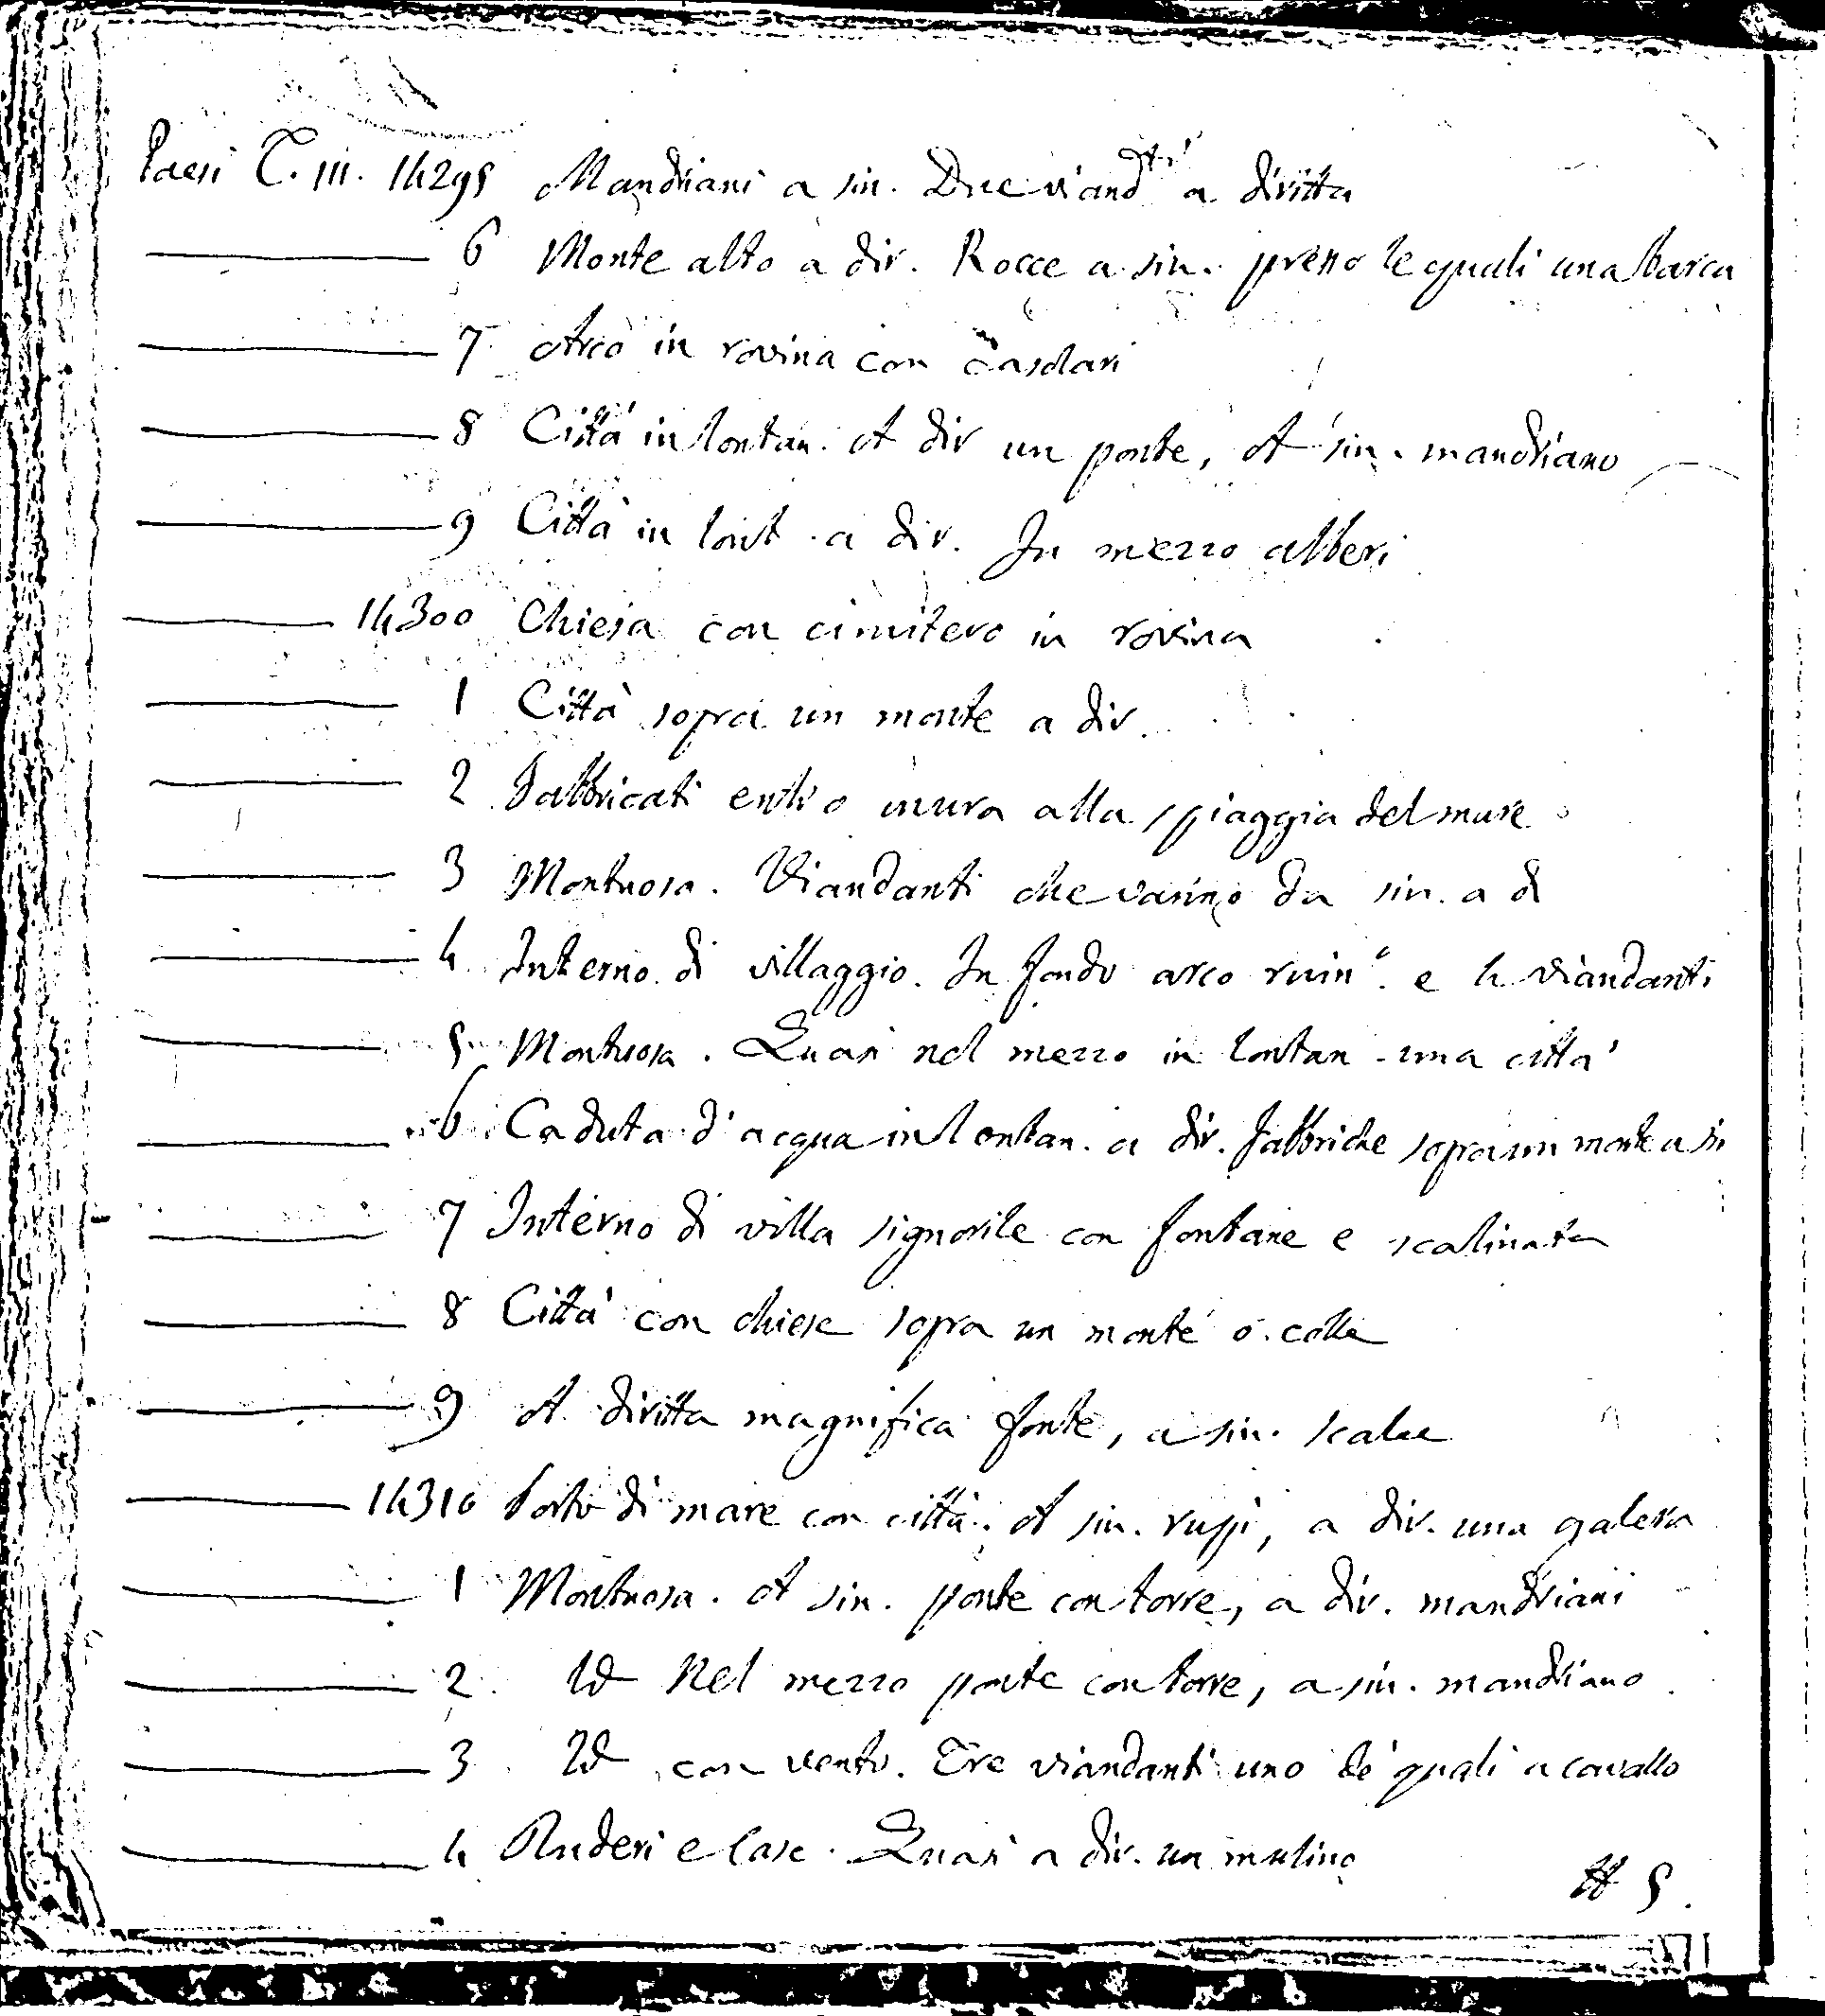 Paesi T. III. 14295 Mandriani a sin. Due viand.ti a diritta
6 Monte alto a dir. Rocce a sin. presso le quali una barca
7 Arco in rovina con casolari
8 Città in lontan. A dir un ponte, A sin. mandriano
9 Città in lont. a dir. In mezzo alberi
14300 Chiesa con cimitero in rovina
1 Città sopra un monte a dir.
2 Fabbricati entro mura alla spiaggia del mare
3 Montuosa. Viandanti che vanno da sin. a d
4 Interno di villaggio. In fondo arco ruin.o e 4 viandanti
5 Montuosa. Quasi nel mezzo in lontan. una città
6 Caduta d'acqua in lontan. a dir. fabbriche sopra un monte a sin
7 Interno di villa signorile con fontane e scalinata
8 Città con chiese sopra un monte o colle
9 A diritta magnifica fonte, a sin. scalee
14310 Porto di mare con città. A sin. rupi, a dir. una galera
1 Montuosa. A sin. ponte con torre, a dir. mandriani
2 Id Nel mezzo ponte con torre, a sin. mandriano
3 Id con vento. Tre viandanti uno de' quali a cavallo
4 Ruderi e Case. Quasi a dir. un mulino
5.